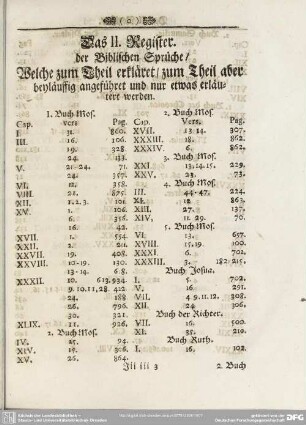 ( 0. )
Das II. Register.
der Biblischen Sprüche/
Welche zum Theil erkläret/ zum Theil aber
beyläuffig angeführet und nur etwas erläu-
tert werden.
1. Buch Mos.
Cap. vers. Pag.
I. 31. 860.
III. 16. 106.
19. 328.
24. 133.
V. 21-24. 71.
24. 357.
VI. 12. 358.
VIII. 21. 875.
XII. 1.2.3. 101.
XV. 1. 106.
6. 336.
16. 42.
XVII. 1. 554.
XXII. 2. 211.
XXVII. 19. 408.
XXVIII. 10-19. 130.
13-14. 68.
XXXII. 10. 613. 934.
9. 10.11,28. 412.
24. 188
26. 796.
30. 321.
XLIX. 11. 926.
2. Buch Mos.
IV. 25. 94.
XIV. 15. 306.
XV. 26. 864.
2. Buch Mos.
Cap. Vers. Pag.
XVII. 13-14. 307.
XXXIII. 18. 862.
XXXIV. 6. 862.
3. Buch Mos.
XXI. 13.14.15. 229.
XXV. 23. 73.
4. Buch Mos.
III. 44-47. 224.
XI. 12. 863.
XIII. 27. 137.
XIV. 11. 29. 70.
5. Buch Mos.
VI. 13. 657.
XVIII. 15.19. 100.
XXX. 6. 702.
XXXIII. 3. 182:215.
Buch Josua.
I. 5. 702.
V. 16. 291.
VII. 4 9.11.12. 308.
XII. 24 306.
Buch der Richter.
VII. 16. 500.
XI. 35. 210.
Buch Ruth.
I. 16. 102.
Jii iii 3
2. Buch